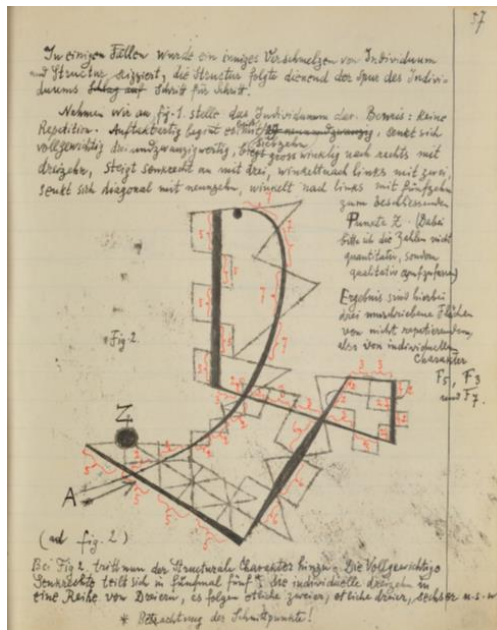 57
In einigen Fällen wurde ein inniges Verschmelzen von Individuum
und Structur skizziert, die Structur folgte dienend der Spur des Indivi-
duums Schlag auf Schritt für Schritt!
Nehmen wir an, fig. 1. stelle das Individuum dar. Beweis: keine
Repetition. Auftaktartig beginnt es mit siebzehn, senkt sich
vollgewichtig dreiundzwanzigwertig, biegt grosswinklig nach rechts mit
dreizehn, steigt senkrecht an mit drei, winkelt nach links mit zwei,
senkt sich diagonal mit neunzehn, winkelt nach links mit fünfzehn
zum beschliessenden
Punkte Z. (Dabei
bitte ich die Zahlen nicht
quantitativ, sondern
qualitativ aufzufassen)
Ergebnis sind hierbei
drei umschriebene Flächen
von nicht repetierendem,
also von individuellem
Charakter
F5, F3
und F7.
Fig 2.
Z
A
(auf fig. 2)
Bei Fig 2. tritt nun der Structurale Charakter hinzu. Die Vollgewichtige
Senkrechte teilt sich in fünfmal fünf, die individuelle dreizehn in
eine Reihe von Dreiern, es folgen etliche zweier, etliche dreier, sechser u.s.w
* Betrachtung der Schnittpunkte!